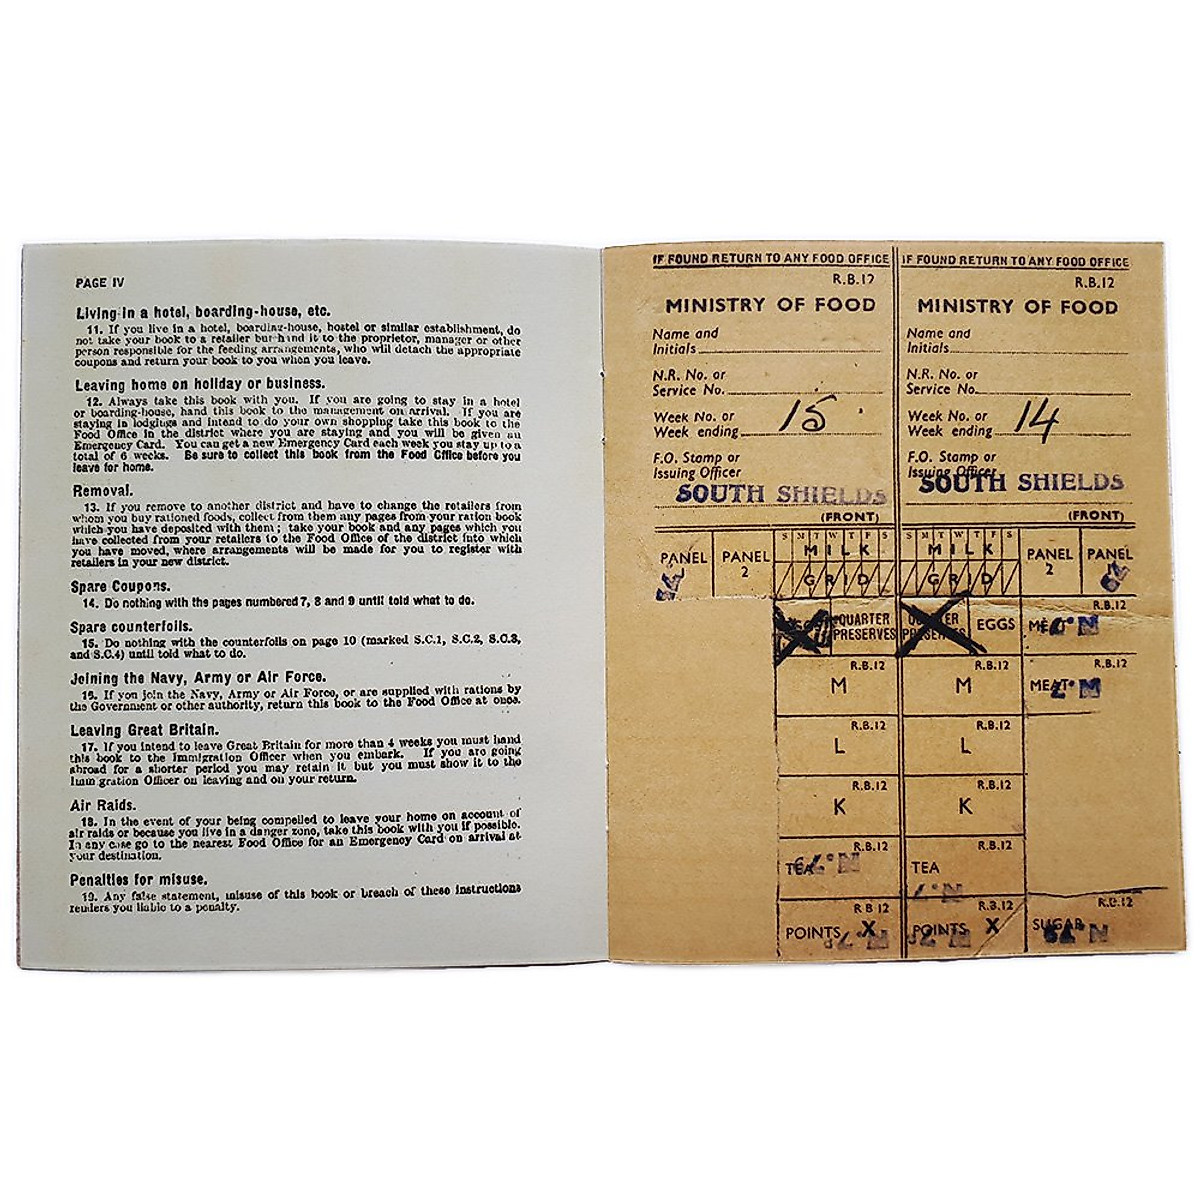 PAGE IV
Living in a hotel, boarding-house, etc.
11. If you live in a hotel, boarding-house, hostel or similar establishment, do
not take your book to a retailer but hand it to the proprietor, manager or other
person responsible for the feeding arrangements, who will detach the appropriate
coupons and return your book to you when you leave.
Leaving home on holiday or business.
12. Always take this book with you. If you are going to stay in a hotel
or boarding-house, hand this book to the management on arrival. If you are
staying in lodgings and intend to do your own shopping take this book to the
Food Office in the district where you are staying and you will be given an
Emergency Card. You can get a new Emergency Card each week you stay up to a
total of 6 weeks. Be sure to collect this book from the Food Office before you
leave for home.
Removal.
13. If you remove to another district and have to change the retailers from
whom you buy rationed foods, collect from them any pages from your ration book
which you have deposited with them; take your book and any pages which you
have collected from your retailers to the Food Office of the district into which
you have moved, where arrangements will be made for you to register with
retailers in your new district.
Spare Coupons.
14. Do nothing with the pages numbered 7, 8 and 9 until told what to do.
Spare counterfoils.
15. Do nothing with the counterfoils on page 10 (marked S.C.1, S.C.2, S.C.3,
and S.C.4) until told what to do.
Joining the Navy, Army or Air Force.
16. If you join the Navy, Army or Air Force, or are supplied with rations by
the Government or other authority, return this book to the Food Office at once.
Leaving Great Britain.
17. If you intend to leave Great Britain for more than 4 weeks you must hand
this book to the Immigration Officer when you embark. If you are going
abroad for a shorter period you may retain it but you must show it to the
Immigration Officer on leaving and on your return.
Air Raids.
18. In the event of your being compelled to leave your home on account of
air raids or because you live in a danger zone, take this book with you if possible.
In any case go to the nearest Food Office for an Emergency Card on arrival at
your destination.
Penalties for misuse.
19. Any false statement, misuse of this book or breach of these instructions
renders you liable to a penalty.
IF FOUND RETURN TO ANY FOOD OFFICE
R.B.12
MINISTRY OF FOOD
Name and
Initials
N.R. No. or
Service No.
Week No. or
Week ending 15
F.O. Stamp or
Issuing Officer
SOUTH SHIELDS
(FRONT)
IF FOUND RETURN TO ANY FOOD OFFICE
R.B.12
MINISTRY OF FOOD
Name and
Initials
N.R. No. or
Service No.
Week No. or
Week ending 14
F.O. Stamp or
Issuing Officer
SOUTH SHIELDS
(FRONT)
PANEL PANEL 2 S M T W T F S MILK GRID S M T W T F S MILK GRID PANEL 2 PANEL
QUARTER PRESERVES EGGS R.B.12
R.B.12 M R.B.12 M R.B.12 MEAT
R.B.12 L R.B.12 L
R.B.12 K R.B.12 K
R.B.12 TEA R.B.12 TEA
R.B.12 POINTS X R.B.12 POINTS X R.B.12 SUGAR